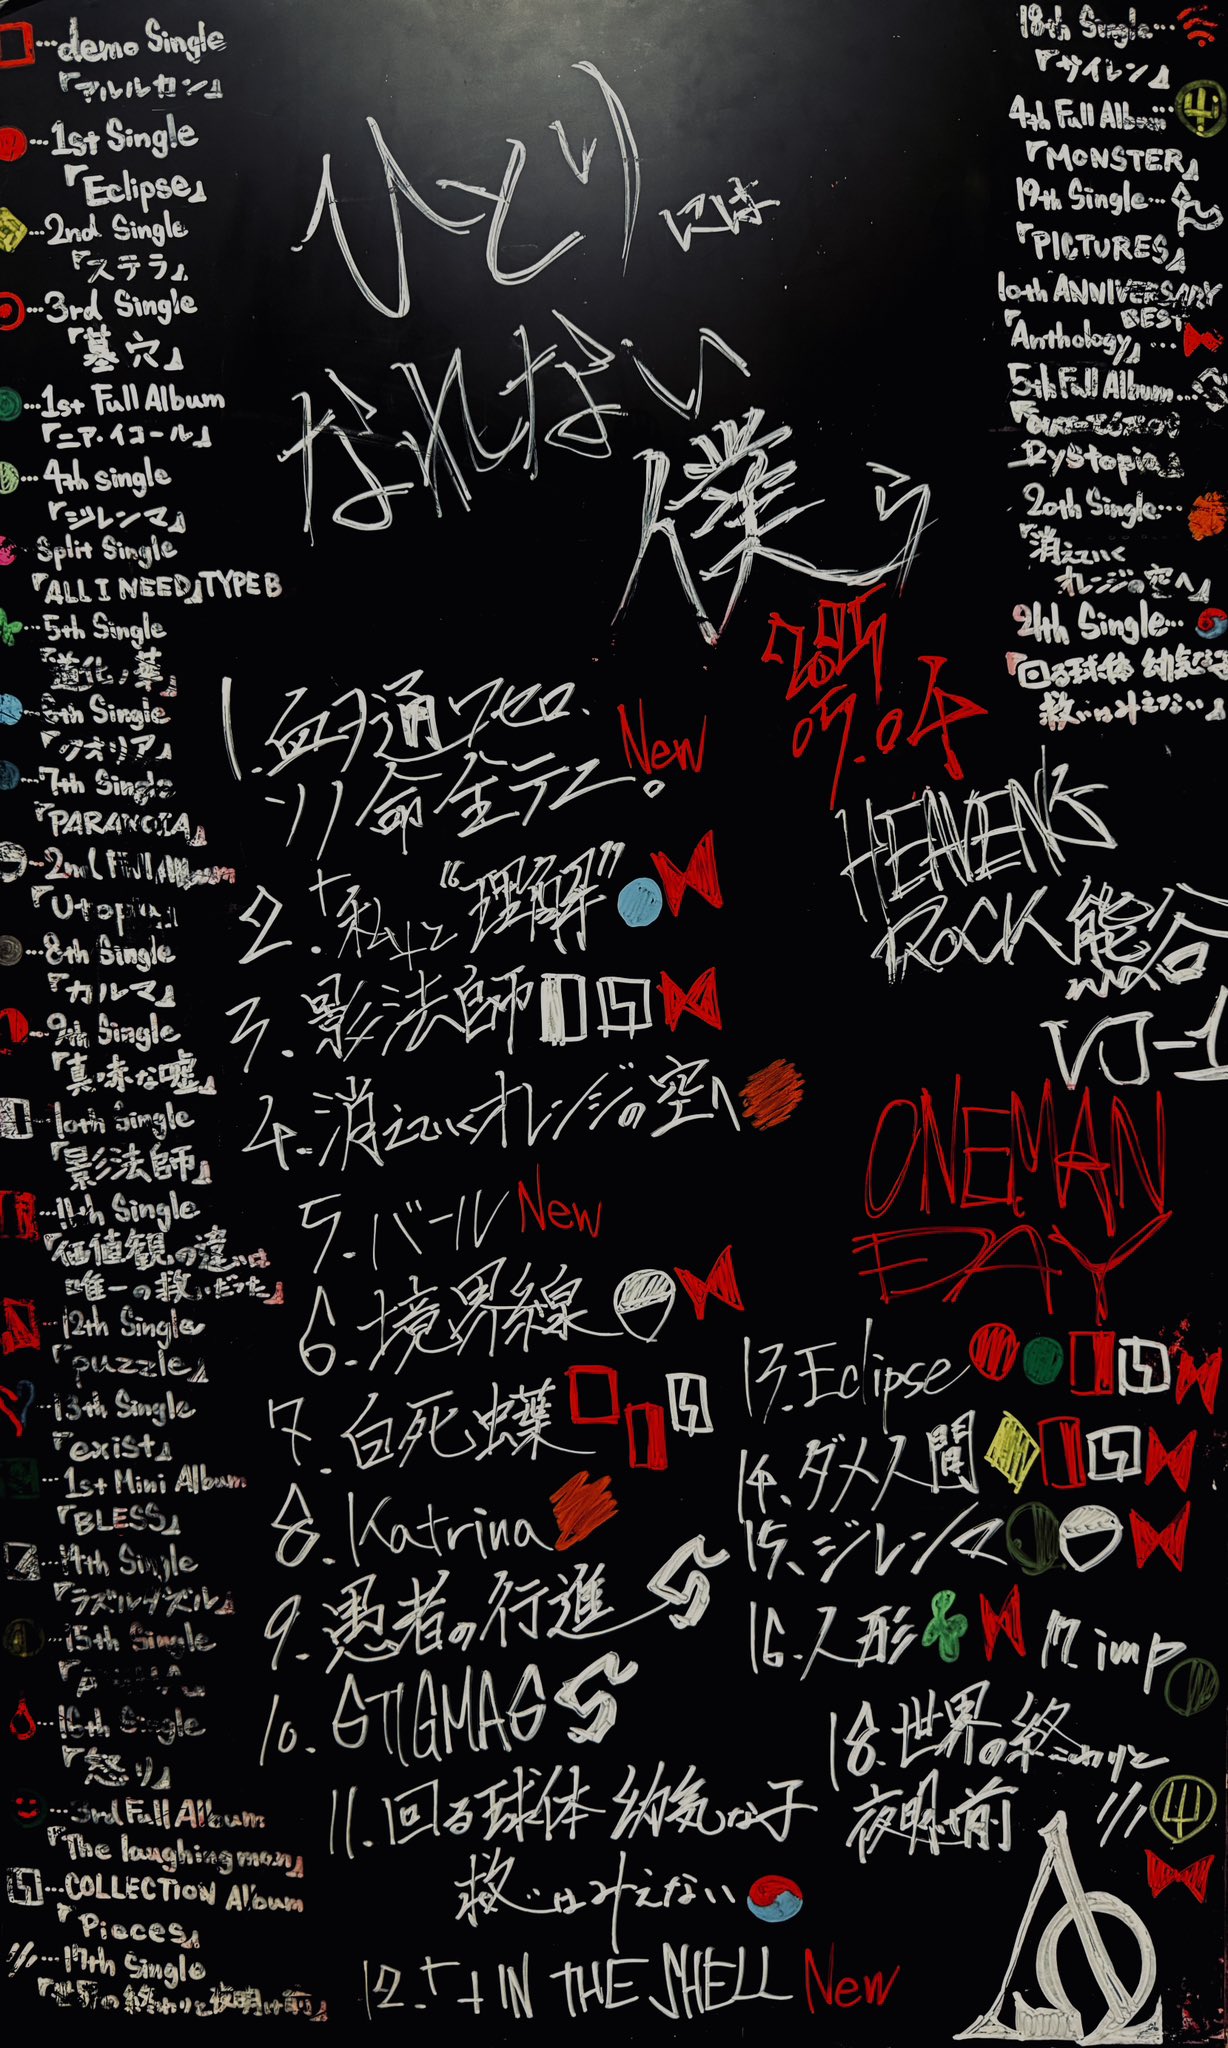 …demo Single
『アルルカン』
…1st Single
『Eclipse』
…2nd Single
『ステラ』
…3rd Single
『墓穴』
…1st Full Album
『ニア・イコール』
…4th single
『ジレンマ』
Split Single
『ALL I NEED』TYPE B
5th Single
『道化ノ華』
…6th Single
『クオリア』
…7th Single
『PARANOIA』
…2nd Full Album
『Utopia』
…8th Single
『カルマ』
…9th Single
『真っ赤な嘘』
…10th Single
『影法師』
…11th Single
『価値観の違いは
唯一の救いだった』
…12th Single
『puzzle』
…13th Single
『exist』
…1st Mini Album
『BLESS』
…14th Single
『ラズルダズル』
…15th Single
…16th Single
『怒り』
…3rd Full Album
『The laughing man』
…COLLECTION Album
『Pieces』
…17th Single
『世界の終わりと夜明け前』
ひとりには
なれない
僕ら
2025
05.04
HEAVEN'S
ROCK 熊谷
VJ-1
ONEMAN
DAY
1.血ヲ通ワセロ、
ソノ命全テニ。 New
2.私と"理解"
3.影法師
4.消えていくオレンジの空へ
5.バール New
6.境界線
7.白死蝶
8.Katrina
9.愚者の行進
10.STIGMAS
11.回る球体 幼気な子
救いはみえない
12. IN THE SHELL New
13.Eclipse
14.ダメ人間
15.ジレンマ
16.人形
17 imp
18.世界の終わりと
夜明け前
18th Single…
『サイレン』
4th Full Album…
『MONSTER』
19th Single…
『PICTURES』
10th ANNIVERSARY
BEST
『Anthology』…
5th Full Album…
Dystopia』
20th Single…
『消えていく
オレンジの空へ』
21th Single…
『回る球体 幼気な子
救いはみえない』